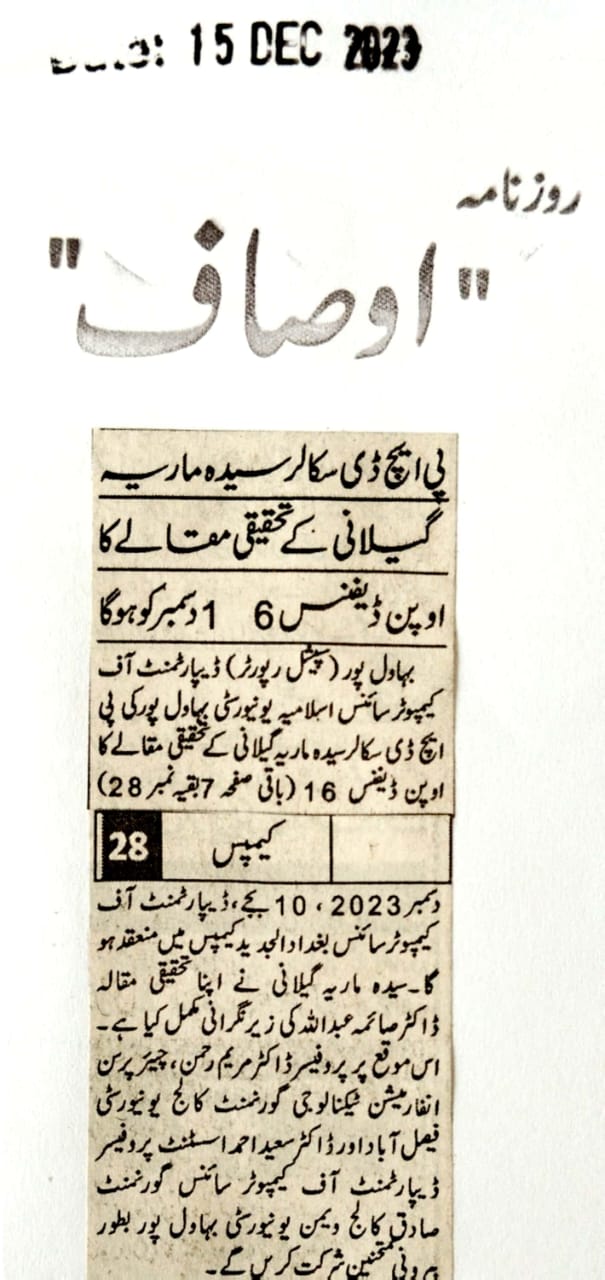 Date: 15 DEC 2023
روزنامہ
"اوصاف"
پی ایچ ڈی سکالر سیدہ ماریہ
گیلانی کے تحقیقی مقالے کا
اوپن ڈیفنس 6 1 دسمبر کو ہوگا
بہاول پور (سپیشل رپورٹر) ڈیپارٹمنٹ آف
کمپیوٹر سائنس اسلامیہ یونیورسٹی بہاول پور کی پی
ایچ ڈی سکالر سیدہ ماریہ گیلانی کے تحقیقی مقالے کا
اوپن ڈیفنس 16 (باقی صفحہ 7 بقیہ نمبر 28)
کیمپس 28
دسمبر 2023، 10 بجے، ڈیپارٹمنٹ آف
کمپیوٹر سائنس بغداد الجدید کیمپس میں منعقد ہو
گا۔ سیدہ ماریہ گیلانی نے اپنا تحقیقی مقالہ
ڈاکٹر صائمہ عبداللہ کی زیر نگرانی مکمل کیا ہے۔
اس موقع پر پروفیسر ڈاکٹر مریم رحمن، چیئر پرسن
انفارمیشن ٹیکنالوجی گورنمنٹ کالج یونیورسٹی
فیصل آباد اور ڈاکٹر سعید احمد اسسٹنٹ پروفیسر
ڈیپارٹمنٹ آف کمپیوٹر سائنس گورنمنٹ
صادق کالج ویمن یونیورسٹی بہاول پور بطور
بیرونی ممتحنین شرکت کریں گے۔